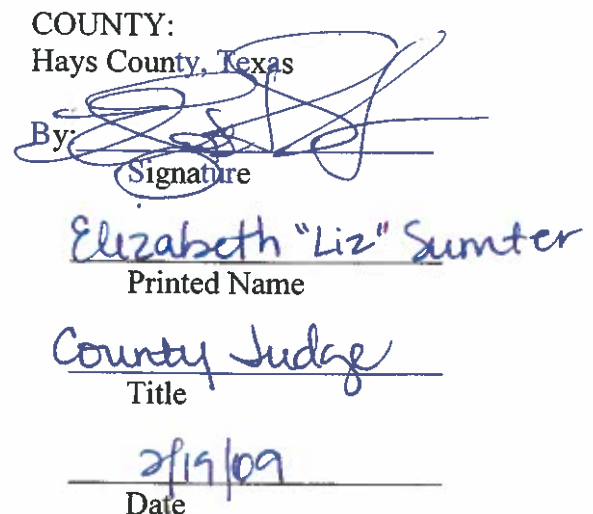 COUNTY:
Hays County, Texas
By:
Signature
Elizabeth "Liz" Sumter
Printed Name
County Judge
Title
2/19/09
Date